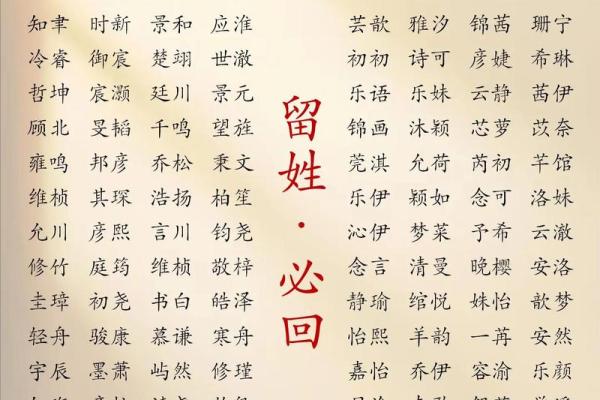 知聿 时新 景和 应淮
冷睿 御宸 楚翊 世澈
哲坤 宸灏 廷川 景元
顾北 旻韬 千鸣 望旌
雍鸣 邦彦 乔松 秉文
维桢 其琛 浩扬 柏笙
允川 彦熙 言川 钧尧
修竹 庭筠 维桢 敬梓
圭璋 初尧 书白 皓泽
轻舟 骏康 慕谦 寒舟
宇辰 墨萧 屿然 修瑾
留姓·必回
芸歆 雅汐 锦茜 珊宁
初初 诗可 彦婕 希琳
乐语 乐妹 云静 茜伊
锦画 沐颖 芯萝 苡奈
莞淇 允荷 芮初 芊馆
乐伊 颖如 念可 洛妹
沁伊 梦菜 予希 云澈
念言 清曼 晚樱 安洛
静瑜 绾悦 姝怡 歆梦
怡熙 羊韵 一苒 安然
嘉怡 乔伊 容渝 乐颜